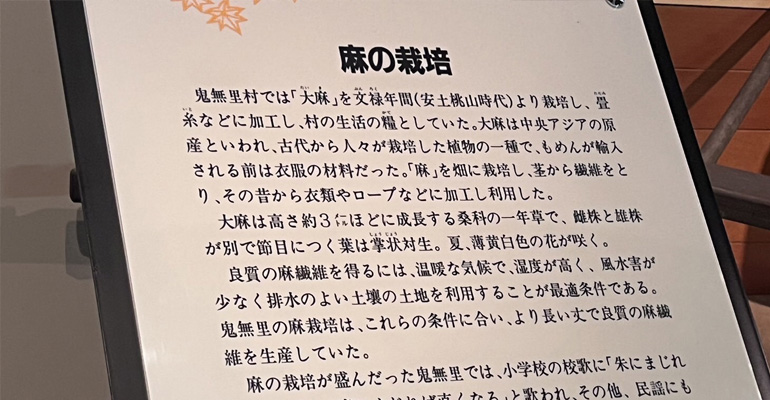 麻の栽培
鬼無里村では「大麻」を文禄年間(安土桃山時代)より栽培し、畳
糸などに加工し、村の生活の糧としていた。大麻は中央アジアの原
産といわれ、古代から人々が栽培した植物の一種で、もめんが輸入
される前は衣服の材料だった。「麻」を畑に栽培し、茎から繊維をと
り、その昔から衣類やロープなどに加工し利用した。
大麻は高さ約3㍍ほどに成長する桑科の一年草で、雌株と雄株
が別で節目につく葉は掌状対生。夏、薄黄白色の花が咲く。
良質の麻繊維を得るには、温暖な気候で、湿度が高く、風水害が
少なく排水のよい土壌の土地を利用することが最適条件である。
鬼無里の麻栽培は、これらの条件に合い、より長い丈で良質の麻繊
維を生産していた。
麻の栽培が盛んだった鬼無里では、小学校の校歌に「朱にまじれ
ば直くなる」と歌われ、その他、民謡にも